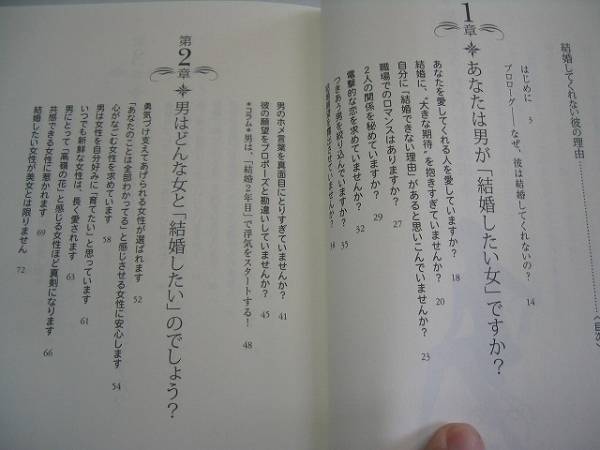 結婚してくれない彼の理由……〈目次〉
はじめに 3
プロローグ――なぜ、彼は結婚してくれないの? 14
1章 あなたは男が「結婚したい女」ですか?
あなたを愛してくれる人を愛していますか? 18
結婚に、“大きな期待”を抱きすぎていませんか? 20
自分に「結婚できない理由」があると思いこんでいませんか? 23
職場でのロマンスはありますか? 27
2人の関係を秘めていますか? 29
電撃的な恋を求めていませんか? 32
つきあう男を絞り込んでいますか? 35
38
男のホメ言葉を真面目にとりすぎていませんか? 41
彼の願望をプロポーズと勘違いしていませんか? 45
*コラム*男は、「結婚2年目」で浮気をスタートする! 48
第2章 男はどんな女と「結婚したい」のでしょう?
勇気づけ支えてあげられる女性が選ばれます 52
「あなたのことは全部わかってる」と感じさせる女性に安心します 54
心がなごむ女性を求めています 58
男は女性を自分好みに「育てたい」と思っています 61
いつでも新鮮な女性は、長く愛されます 63
男にとって「高嶺の花」と感じる女性ほど真剣になります 66
共感できる女性に惹かれます 69
結婚したい女性が美女とは限りません 72